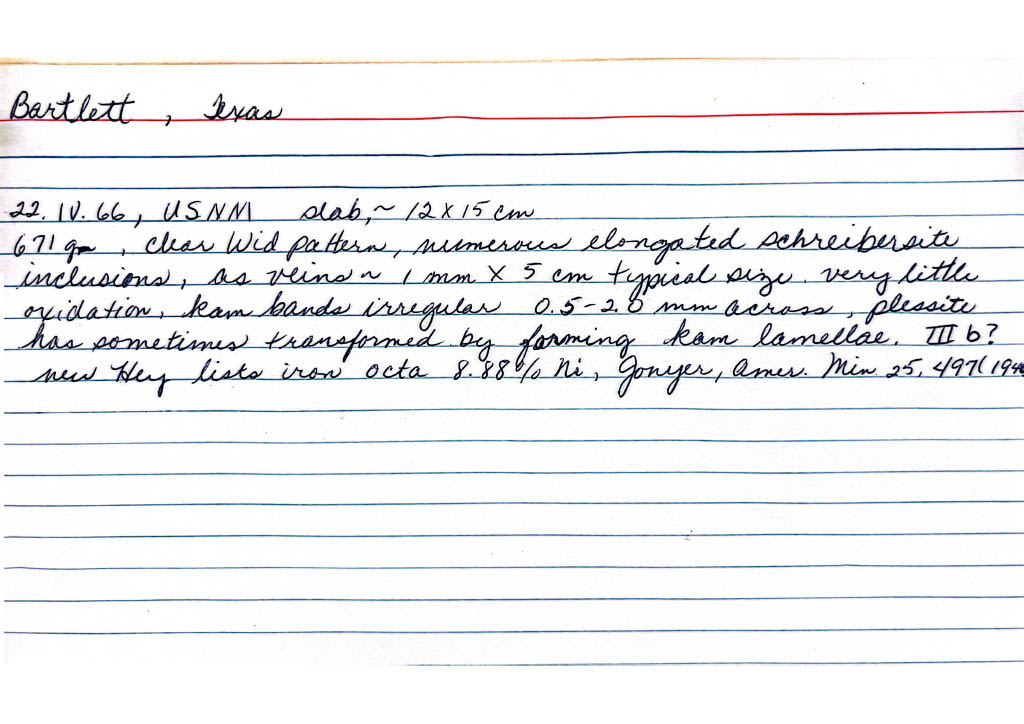 Bartlett, Texas
22. IV. 66, USNM slab, ~ 12 x 15 cm
671 gm, clear Wid pattern, numerous elongated schreibersite
inclusions, as veins ~ 1 mm X 5 cm typical size. very little
oxidation, kam bands irregular 0.5-2.0 mm across, plessite
has sometimes transformed by forming kam lamellae. III b?
new Hey lists iron octa 8.88% Ni, Gonyer, Amer. Min. 25, 497(194